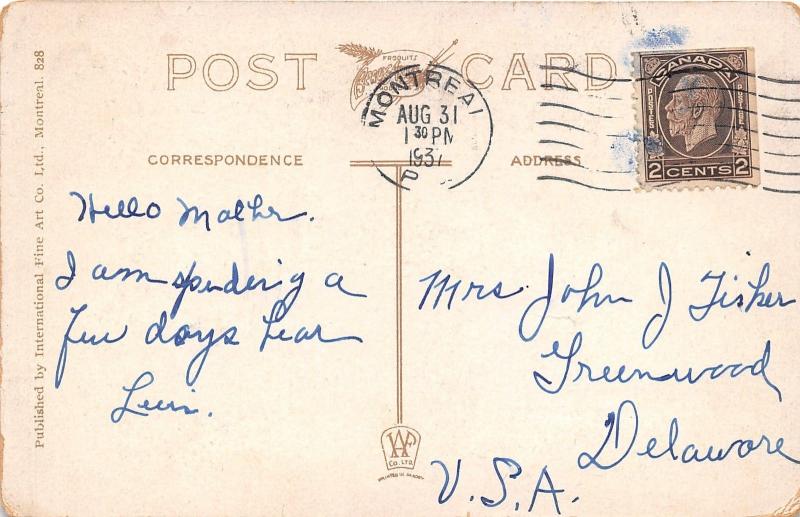 POST CARD
PRODUITS
MONTREAL
AUG 31
1 30 PM
1937
P. Q.
CANADA
POSTES POSTAGE
2 CENTS 2
CORRESPONDENCE
ADDRESS
Hello Mother.
I am spending a
few days hear
Lewis.
Mrs John J Fisher
Greenwood
Delaware
U.S.A.
Published by International Fine Art Co. Ltd., Montreal. 828
CO. LTD.